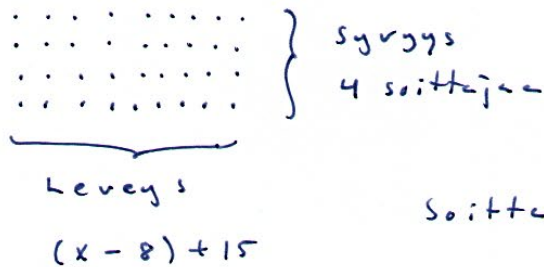 syvyys
4 soittajaa
Leveys
soitta
(x - 8) + 15